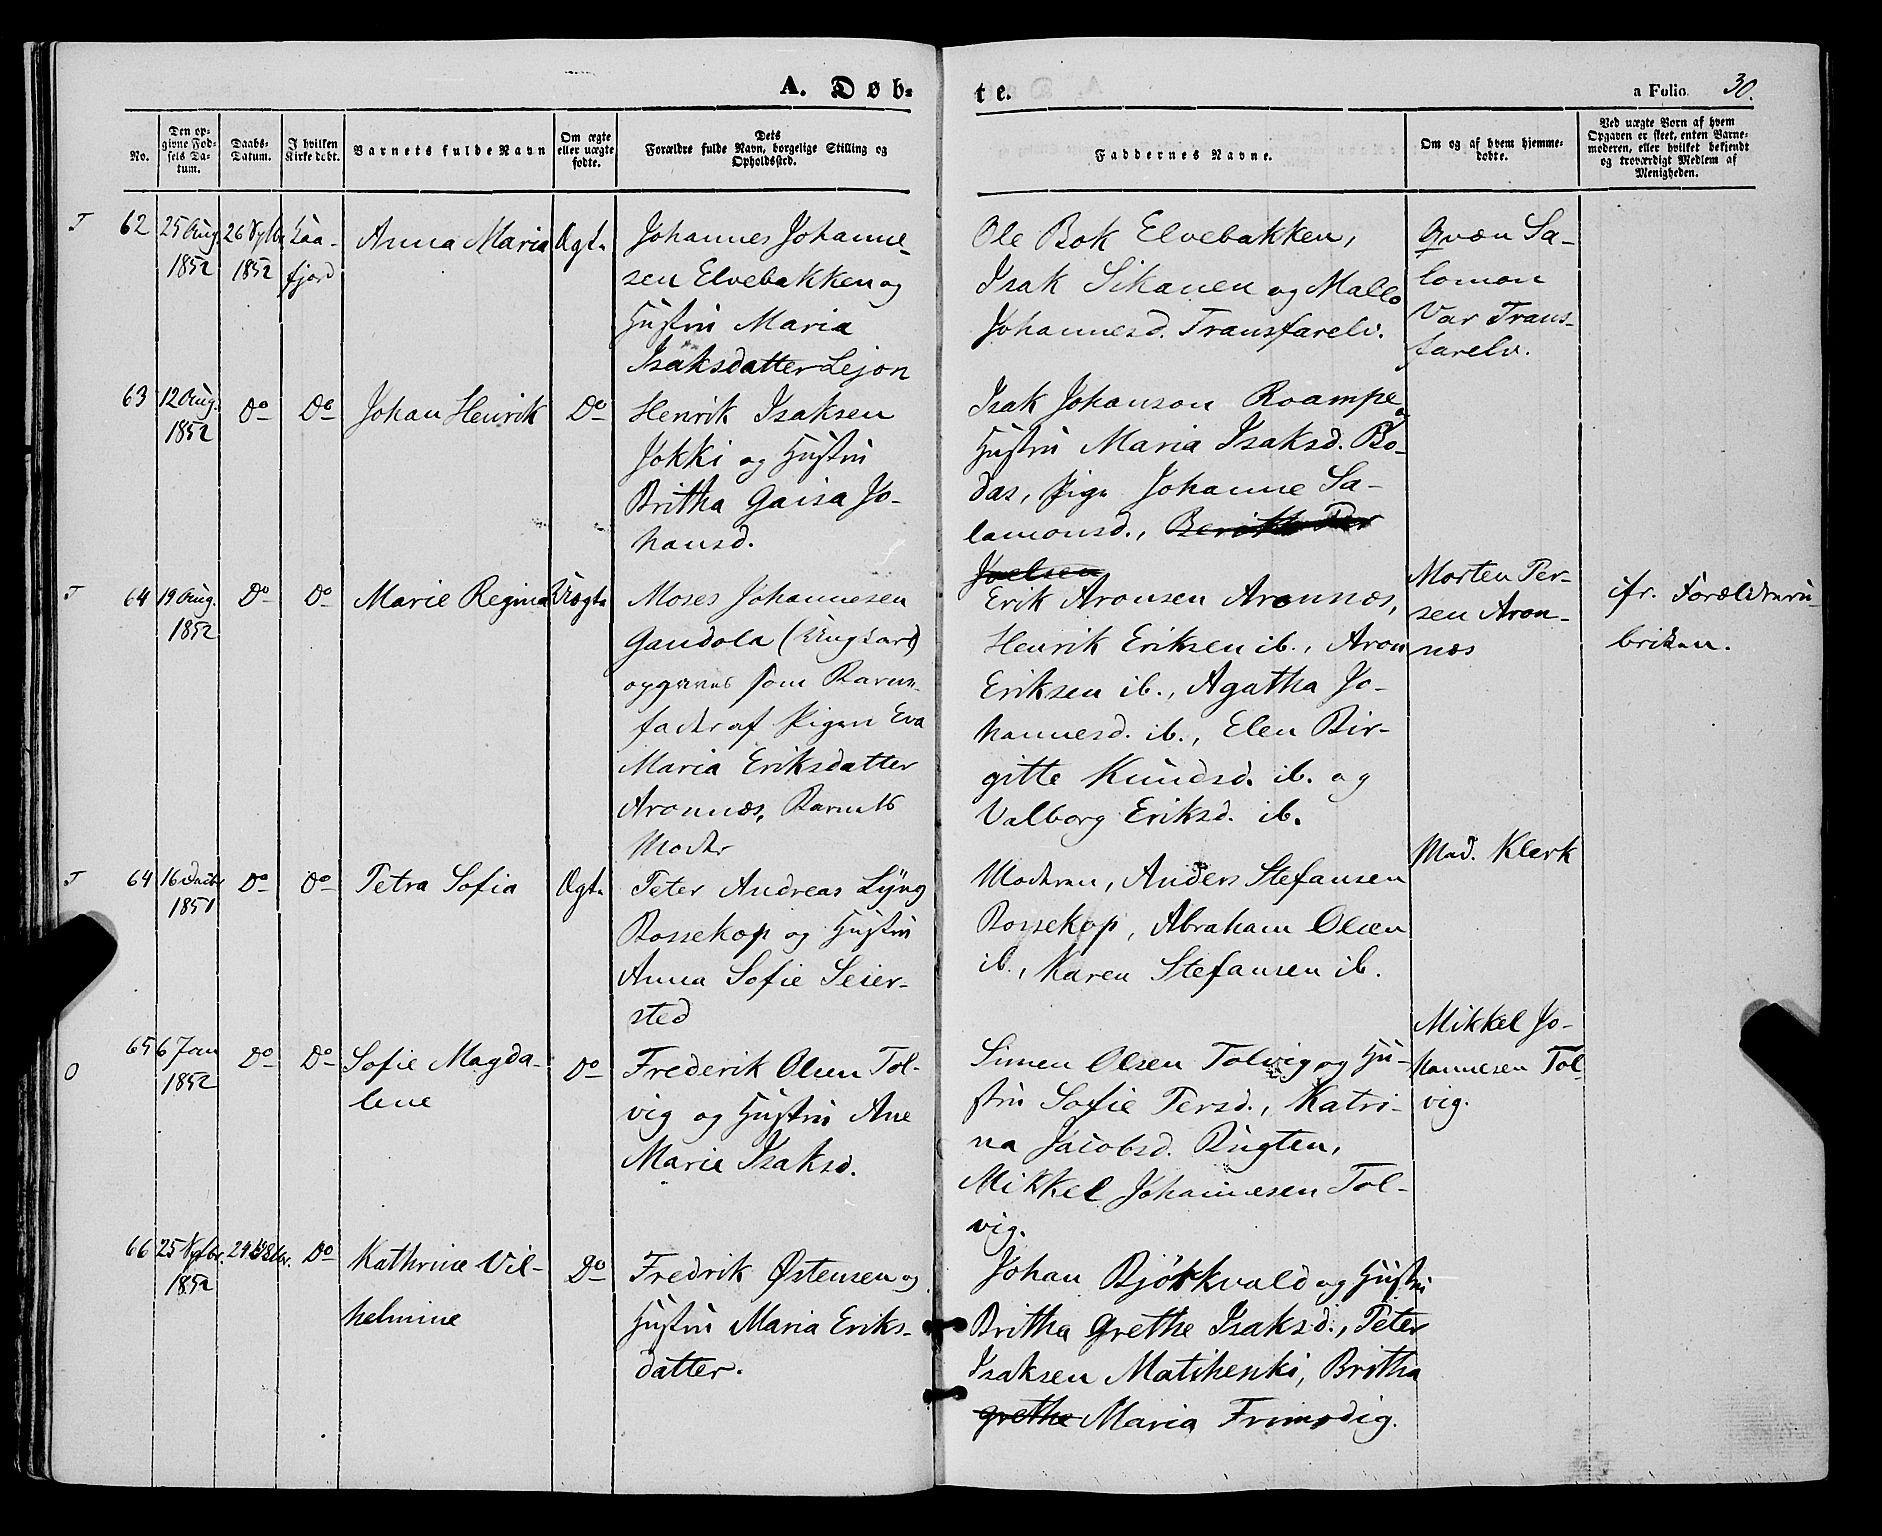 A. Døb-
te.
a Folio 30.
No.
Den opgivne Fødsels Datum.
Daabs-Datum.
I hvilken Kirke døbt.
Barnets fulde Navn
Om ægte eller uægte fødte.
Dets Forældre fulde Navn, borgelige Stilling og Opholdssted.
Faddernes Navne.
Om og af hvem hjemmedøbte.
Ved uægte Børn af hvem Opgaven er skeet, enten Barnemoderen, eller hvilket bekjendt og troværdigt Medlem af Menigheden.
T 62
25 Aug. 1852
26 1852
Kaafjord
Anna Maria
Ægte
Johannes Johanne-
sen Elvebakken og
Hustru Maria
Isaksdatter Lejon
Ole Bok Elvebakken,
Isak Sikanen og Malls
Johannesd. Transfarelv.
Qvæn Sa-
lomon
Var Trans-
farelv.
63
12 Aug. 1852
Do
Do
Johan Henrik
Do
Henrik Isaksen
Jokki og Hustru
Britha Gaisa Jo-
hansd.
Isak Johanson Roampe og
Hustru Maria Isaksd. Bo-
das, Pige Johanne Sa-
lamonsd.,
Joelsen
T 64
19 Aug. 1852
Do
Do
Marie Regina
Uægte
Moses Johannesen
Gandola (Ungkarl)
opgives som Barne-
fader af Pigen Eva
Maria Eriksdatter
Aronnæs, Barnets
Moder
Erik Aronsen Aronnæs,
Henrik Eriksen ib., Aron
Eriksen ib., Agatha Jo-
hannesd. ib., Elen Bir-
gitte Knudsd. ib. og
Valborg Eriksd. ib.
Morten Per-
sen Aron-
næs
cfr. Forældreru-
briken.
T 64
16 1851
Do
Do
Petra Sofia
Ægte
Peter Andreas Lyng
Bossekop og Hustru
Anna Sofie Seier-
sted
Moderen, Anders Stefansen
Bossekop, Abraham Olsen
ib., Karen Stefansen ib.
Mad. Klerk
O 65
6 Jan 1852
Do
Do
Sofie Magda-
lene
Do
Frederik Olsen Tol-
vig og Hustru Ane
Marie Isaksd.
Simen Olsen Tolvig og Hu-
stru Sofie Persd., Katri-
na Jacobsd. Bugten,
Mikkel Johannesen Tol-
vig.
Mikkel Jo-
hannesen Tol-
vig.
66
25 1852
24
Do
Kathrine Vil-
helmine
Do
Fredrik Østensen og
Hustru Maria Eriks-
datter.
Johan Bjørkvald og Hustru
Britha Grethe Isaksd., Peter
Isaksen Matihenki, Britha
Grethe Maria Frimodig.